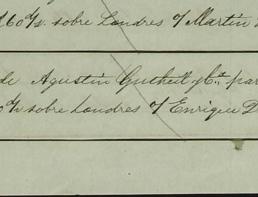 60 d/v. sobre Londres o/ Martin
de Agustin Gutheil y Cª par
d/v sobre Londres o/ Enrique D